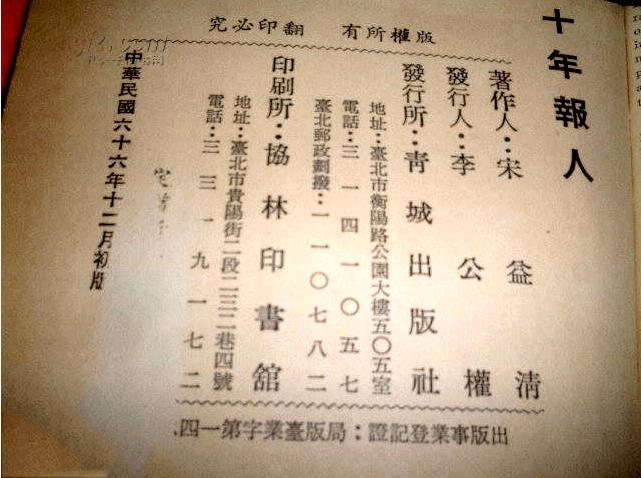 十年報人
版權所有 翻印必究
著作人：宋益清
發行人：李公權
發行所：青城出版社
地址：臺北市衡陽路公園大樓五〇五室
電話：三一四一〇五七
臺北郵政劃撥：一一〇七八二
印刷所：協林印書舘
地址：臺北市貴陽街二段二三二巷四號
電話：三三一九一七二
中華民國六十六年十二月初版
出版事業登記證：局版臺業字第一四